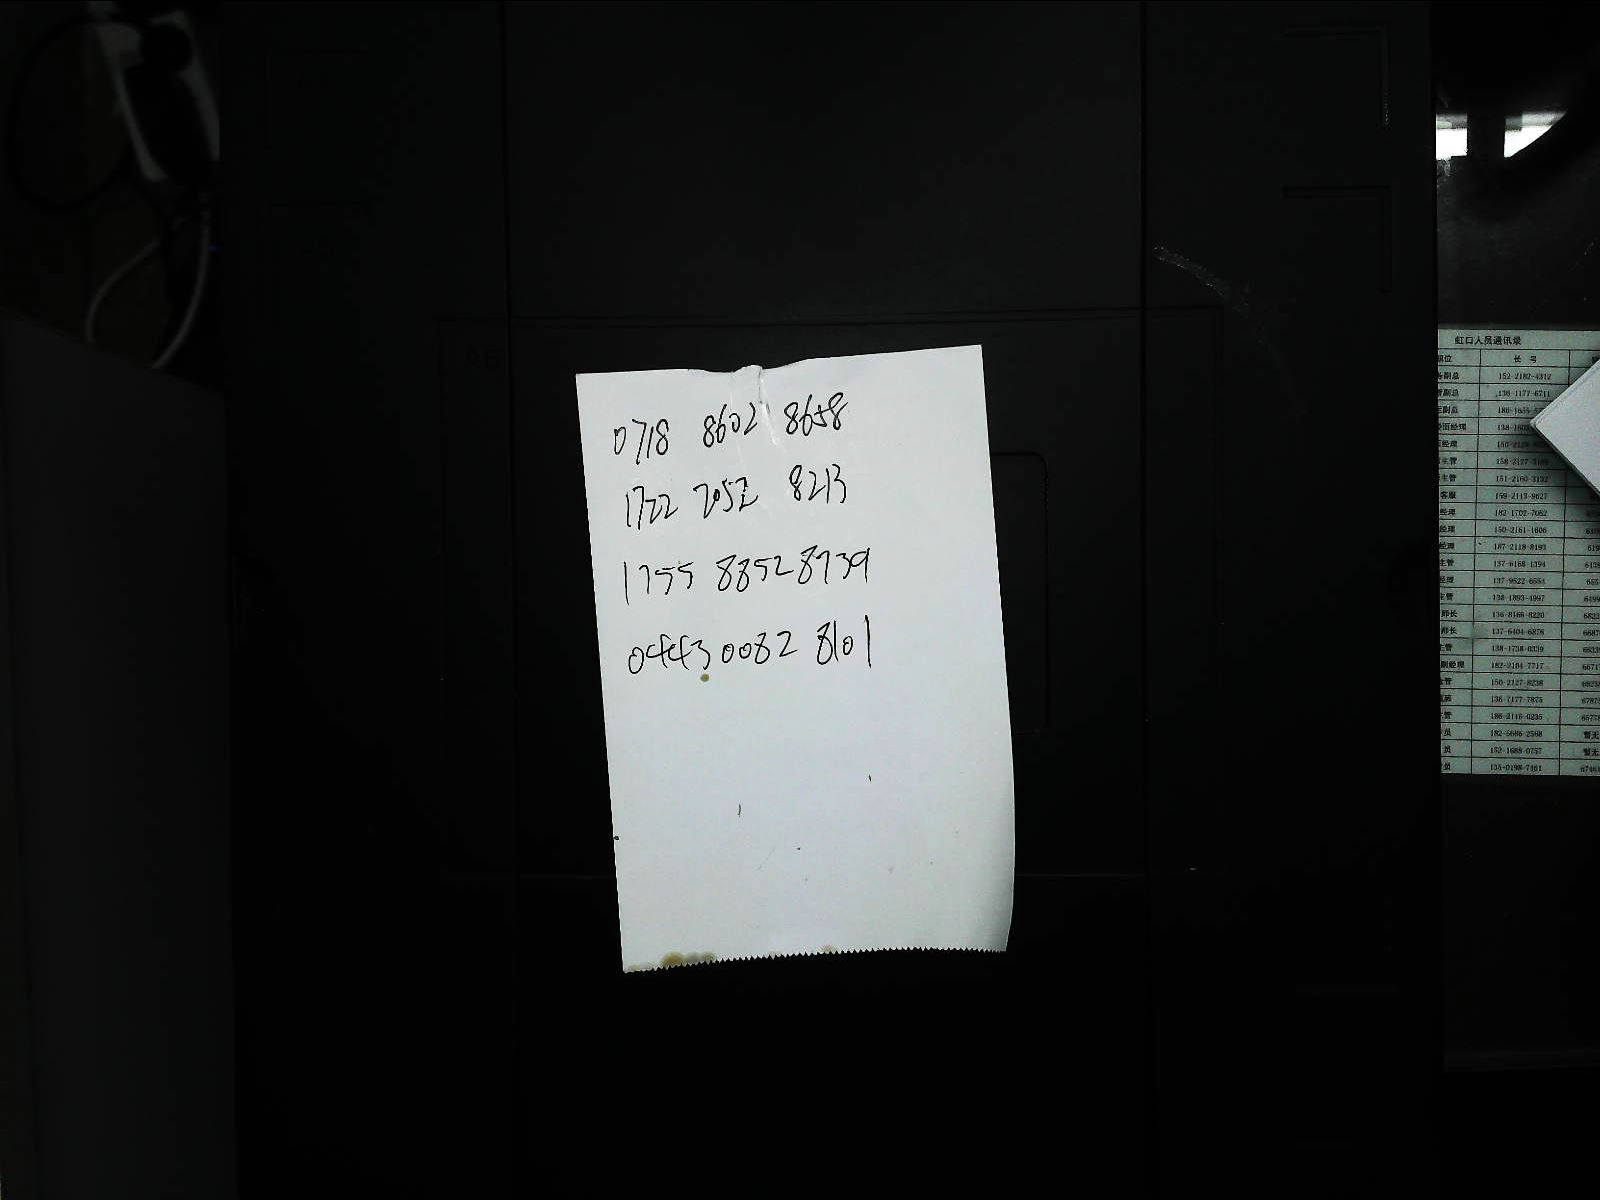 0718 8602 8658
1722 7052 8213
1755 8852 8739
0443 0082 8101
A6
虹口人员通讯录
职位 长 号
副总 152-2182-4312
副总 136-1177-6711
副总 186-1655
经理
主管
主管 151-2160-3192
客服 159-2113-9627
经理 182-1702-7062
经理 150-2161-1606
经理 187-2118-8193
主管 137-6168-1394
经理 137-9522-6554
主管 138-1893-4997
部长 136-8166-8220
部长 137-6404-6876
主管 138-1738-0339
副经理 182-2104-7717
管 150-2127-8238
136-7177-7875
管 186-2116-0235
员 182-5686-2568 暂无
员 152-1688-0757 暂无
员 135-0198-7461